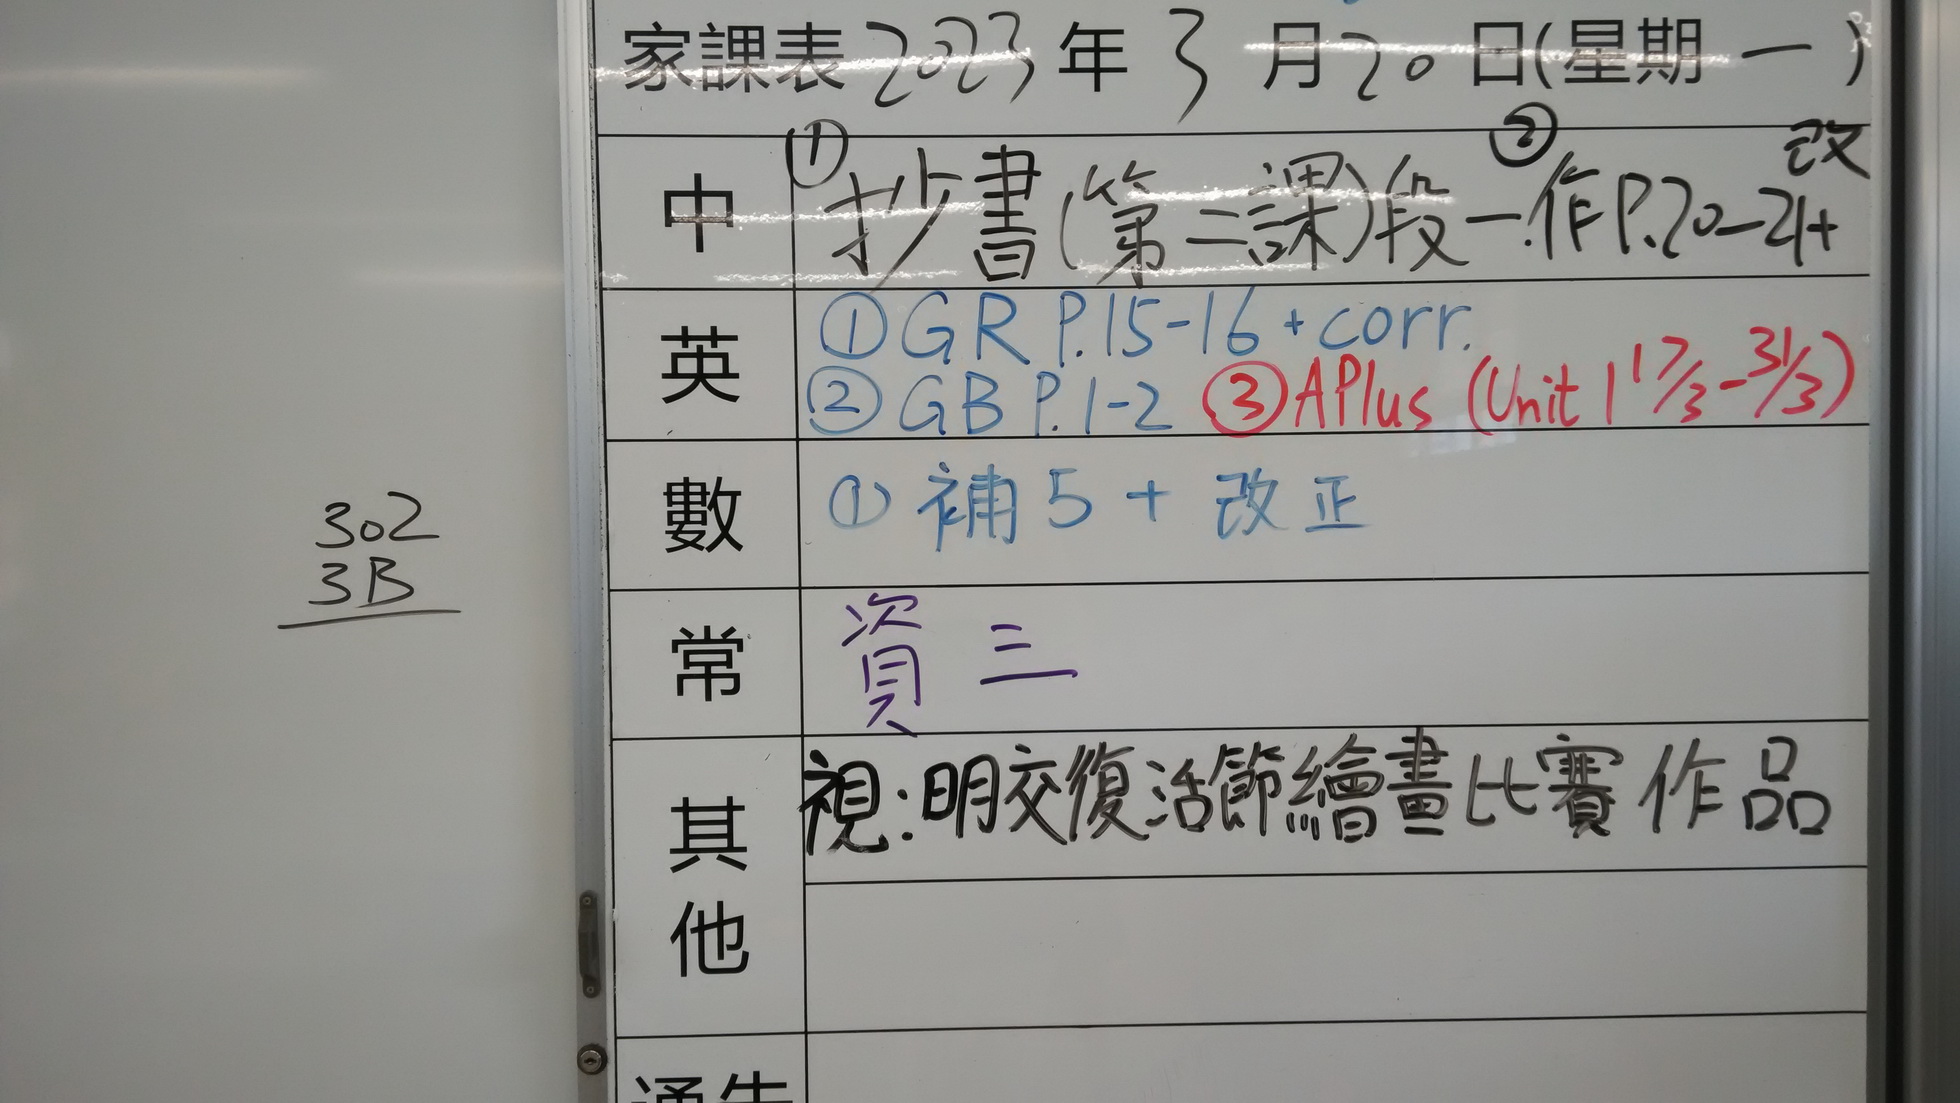 家課表 2023 年 3 月 20 日(星期 一 )
中 ① 抄書(第二課)段一 ② 作P.20-21+改
英 ① GR P.15-16 + corr.
② GB P.1-2 ③ APlus (Unit 1 17/3-31/3)
數 ① 補5 + 改正
302
3B
常 資三
其他 視:明交復活節繪畫比賽作品
通告